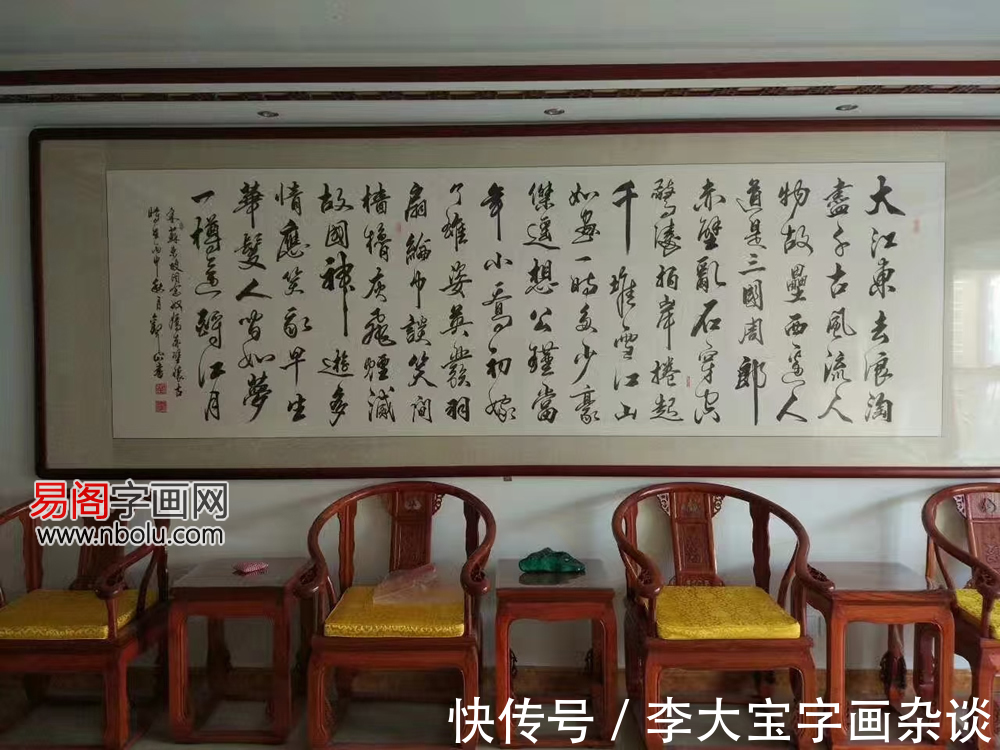 大江東去浪淘
盡千古風流人
物故壘西邊人
道是三國周郎
赤壁亂石穿空
驚濤拍岸捲起
千堆雪江山
如畫一時多少豪
傑遙想公瑾當
年小喬初嫁
了雄姿英發羽
扇綸巾談笑間
檣櫓灰飛煙滅
故國神遊多
情應笑我早生
華髮人間如夢
一樽還酹江月
宋蘇東坡詞念奴嬌赤壁懷古
時在丙申秋月
易阁字画网
www.nbolu.com
快传号 / 李大宝字画杂谈